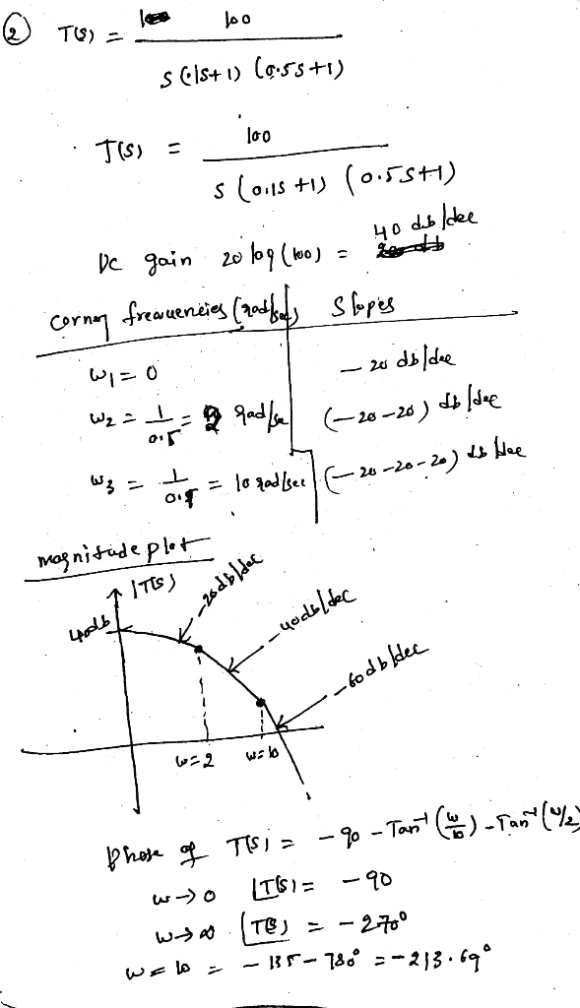 ② T(S) = 100
S(.1S+1) (0.5S+1)
T(S) = 100
S (0.1S+1) (0.5S+1)
DC gain 20 log(100) = 40 db/dec
Corner frequencies (rad/sec) Slopes
ω1 = 0 -20 db/dec
ω2 = 1/0.5 = 2 rad/se (-20-20) db/dec
ω3 = 1/0.1 = 10 rad/sec (-20-20-20) db/dec
magnitude plot
|T(S)
40db
-20db/dec
-40db/dec
-60db/dec
ω=2 ω=10
Phase of T(S) = -90 - Tan⁻¹(ω/10) - Tan⁻¹(ω/2)
ω→0 ∠T(S) = -90
ω→∞ ∠T(S) = -270°
ω=10 = -135-78.6° = -213.69°